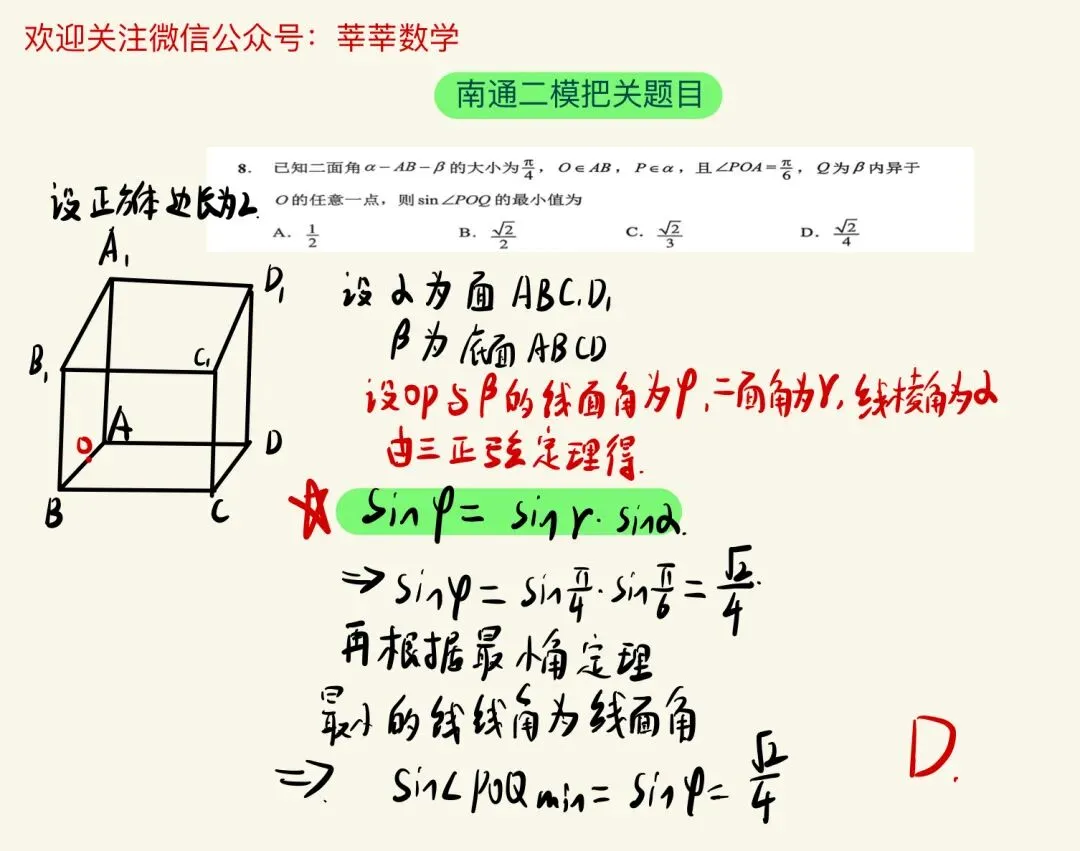 欢迎关注微信公众号：莘莘数学
南通二模把关题目
8. 已知二面角 α－AB－β 的大小为 π/4，O∈AB，P∈α，且∠POA=π/6，Q为β内异于
O的任意一点，则 sin∠POQ 的最小值为
A. 1/2 B. √2/2 C. √2/3 D. √2/4
设正方体边长为2.
A₁
D₁
B₁
C₁
O
A
D
B
C
设α为面ABC₁D₁
β为底面ABCD
设OP与β的线面角为φ, 二面角为γ, 线棱角为α
由三正弦定理得.
☆ sinφ = sinγ·sinα.
⇒ sinφ = sin π/4 · sin π/6 = √2/4.
再根据最小角定理
最小的线线角为线面角
⇒ sin∠POQ min = sinφ = √2/4
D.